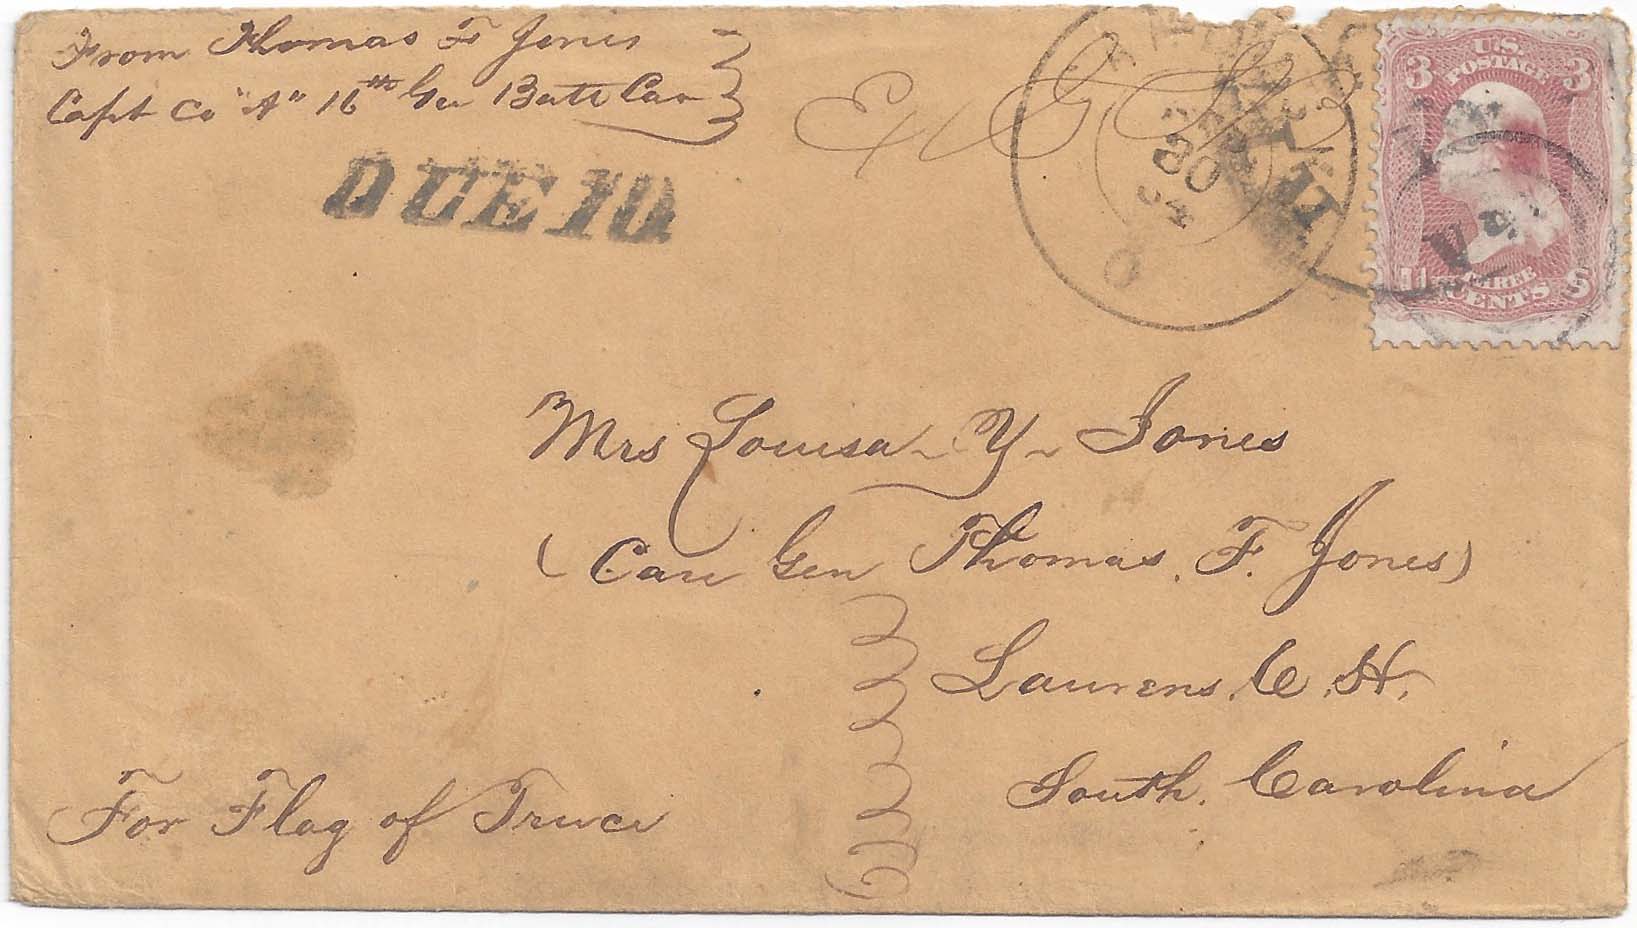 From Thomas F Jones
Capt Co "A" 16th Ga Batt Cav
Ex
DUE 10
30
64
O
U.S.
POSTAGE
3 3
THREE
CENTS
VA
Mrs Louisa Y Jones
(Care Gen Thomas. F. Jones)
Laurens. C. H.
South. Carolina
For Flag of Truce